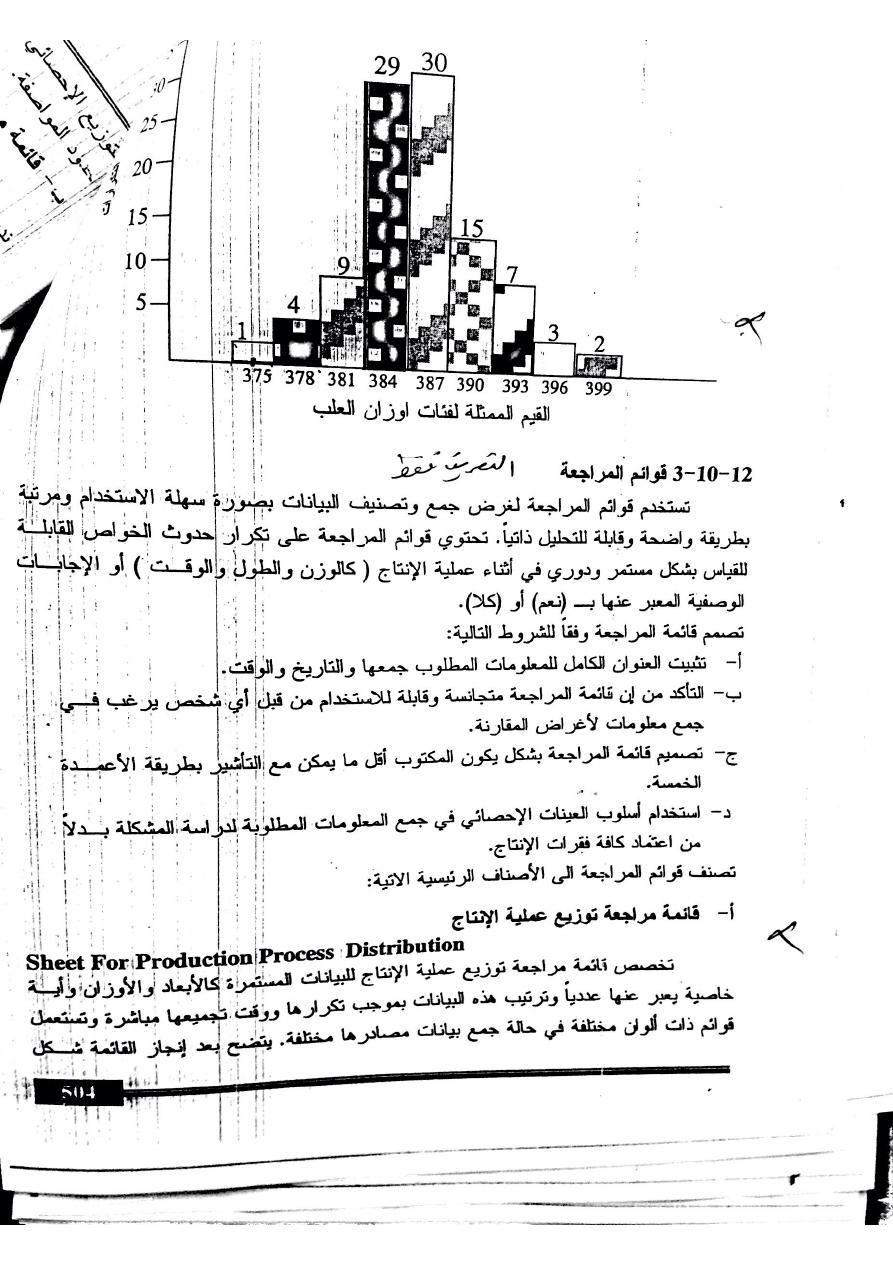 توزيع الإحصائي
المواصفة.
ب- قائمة
30
29
25
20
15
15
10
9
7
5
4
3
2
1
375 378 381 384 387 390 393 396 399
القيم الممثلة لفئات اوزان العلب
3-10-12 قوائم المراجعة التعريف فقط
تستخدم قوائم المراجعة لغرض جمع وتصنيف البيانات بصورة سهلة الاستخدام ومرتبة
بطريقة واضحة وقابلة للتحليل ذاتياً. تحتوي قوائم المراجعة على تكرار حدوث الخواص القابلـة
للقياس بشكل مستمر ودوري في أثناء عملية الإنتاج ( كالوزن والطول والوقـت ) أو الإجابـات
الوصفية المعبر عنها بـ (نعم) أو (كلا).
تصمم قائمة المراجعة وفقاً للشروط التالية:
أ- تثبيت العنوان الكامل للمعلومات المطلوب جمعها والتاريخ والوقت.
ب- التأكد من إن قائمة المراجعة متجانسة وقابلة للاستخدام من قبل أي شخص يرغب فـي
جمع معلومات لأغراض المقارنة.
ج- تصميم قائمة المراجعة بشكل يكون المكتوب أقل ما يمكن مع التأشير بطريقة الأعمـدة
الخمسة.
د- استخدام أسلوب العينات الإحصائي في جمع المعلومات المطلوبة لدراسة المشكلة بـدلاً
من اعتماد كافة فقرات الإنتاج.
تصنف قوائم المراجعة الى الأصناف الرئيسية الاتية:
أ- قائمة مراجعة توزيع عملية الإنتاج
Sheet For Production Process Distribution
تخصص قائمة مراجعة توزيع عملية الإنتاج للبيانات المستمرة كالأبعاد والأوزان وأيـة
خاصية يعبر عنها عددياً وترتيب هذه البيانات بموجب تكرارها ووقت تجميعها مباشرة وتستعمل
قوائم ذات ألوان مختلفة في حالة جمع بيانات مصادرها مختلفة. يتضح بعد إنجاز القائمة شـكل
504